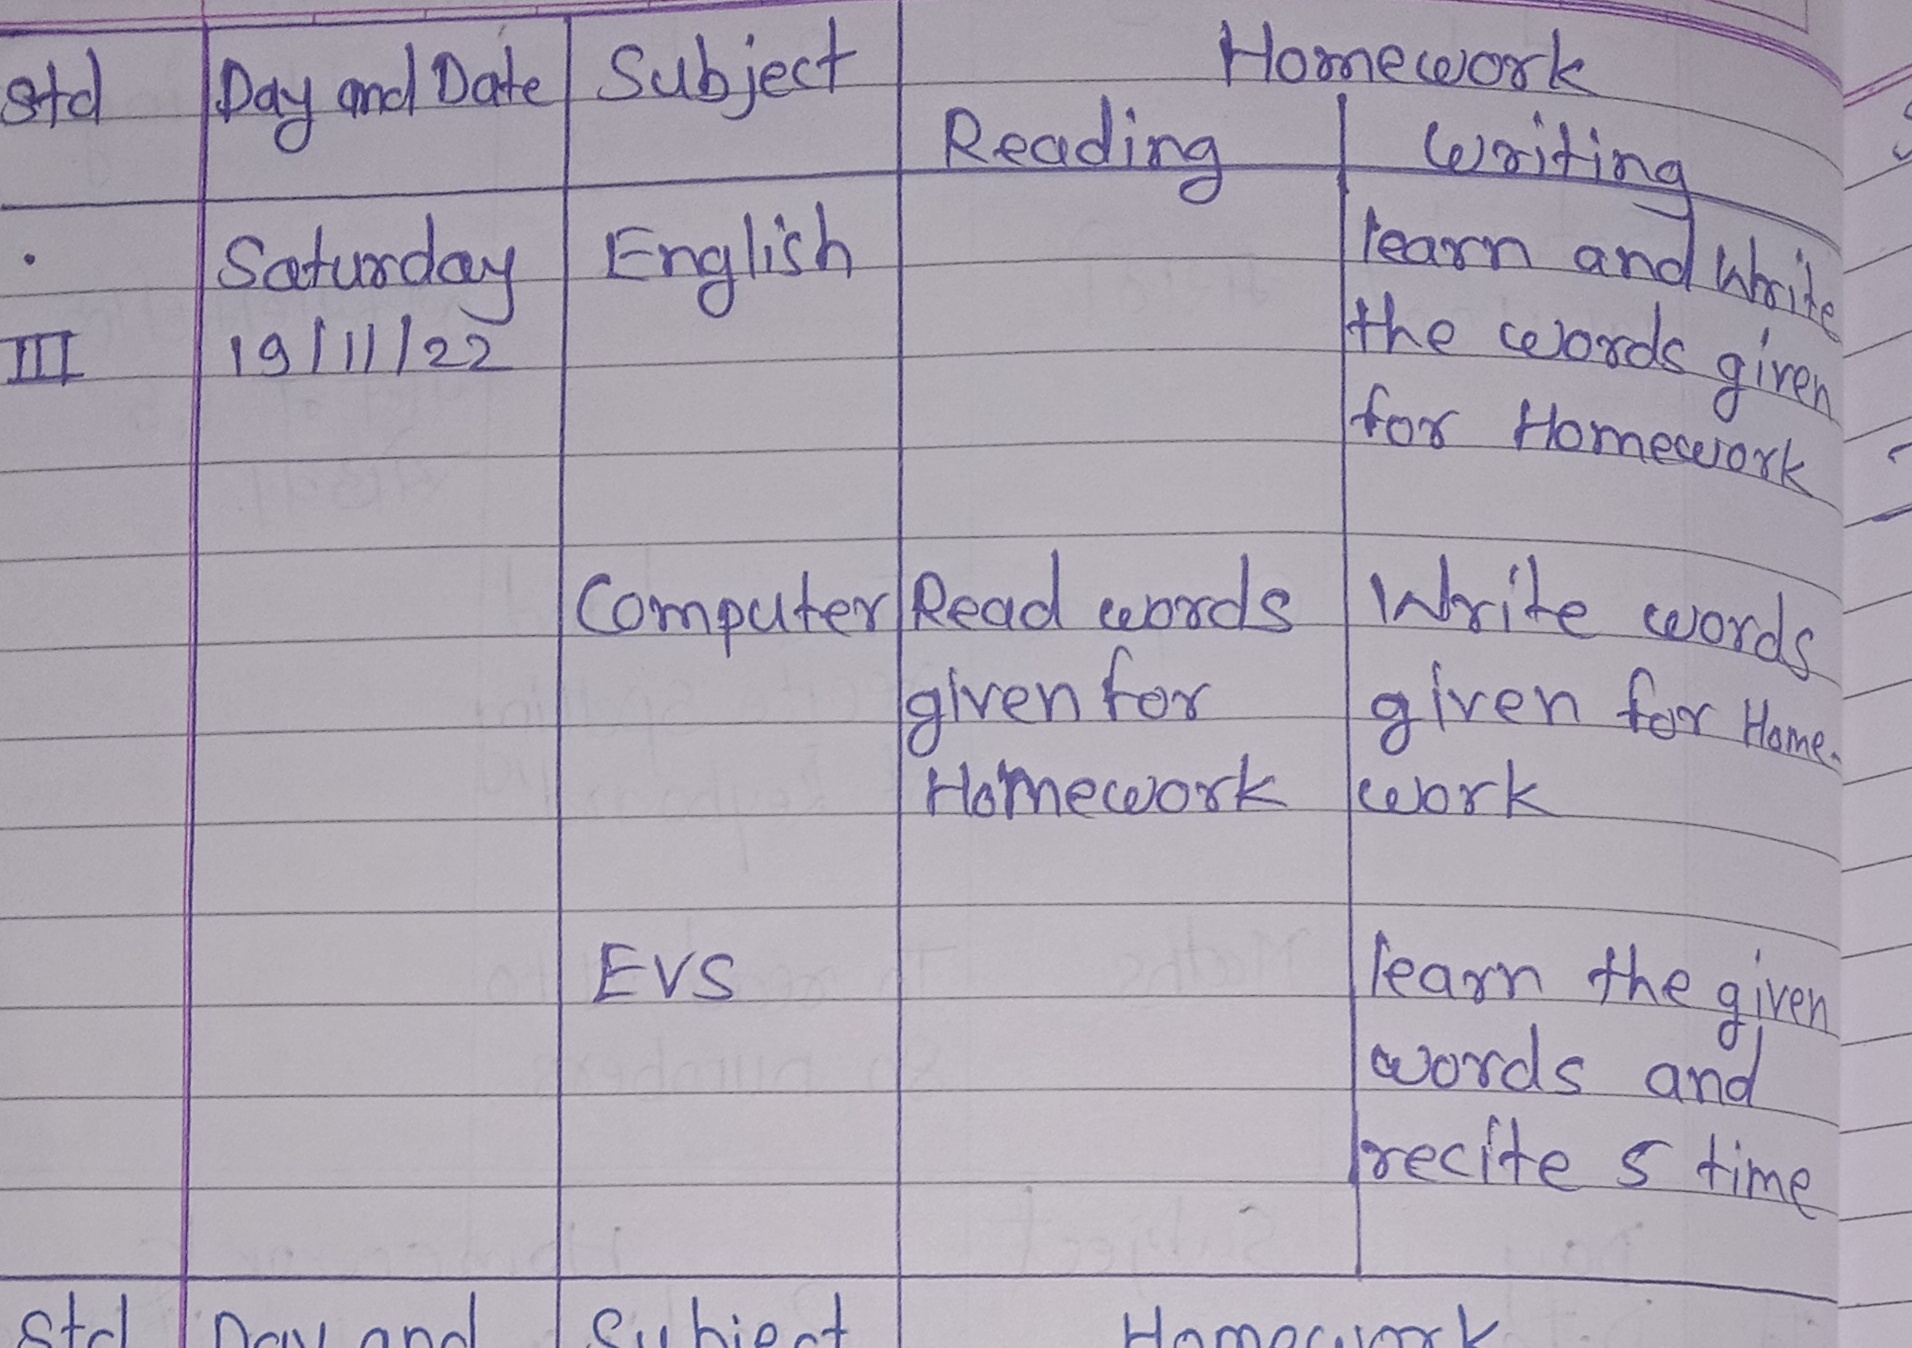 Std Day and Date Subject Homework
Reading Writing
Saturday English learn and Write
III 19/11/22 the words given
for Homework
Computer Read words Write words
given for given for Home-
Homework work
EVS learn the given
words and
recite 5 time
Std Day and Subject Homework